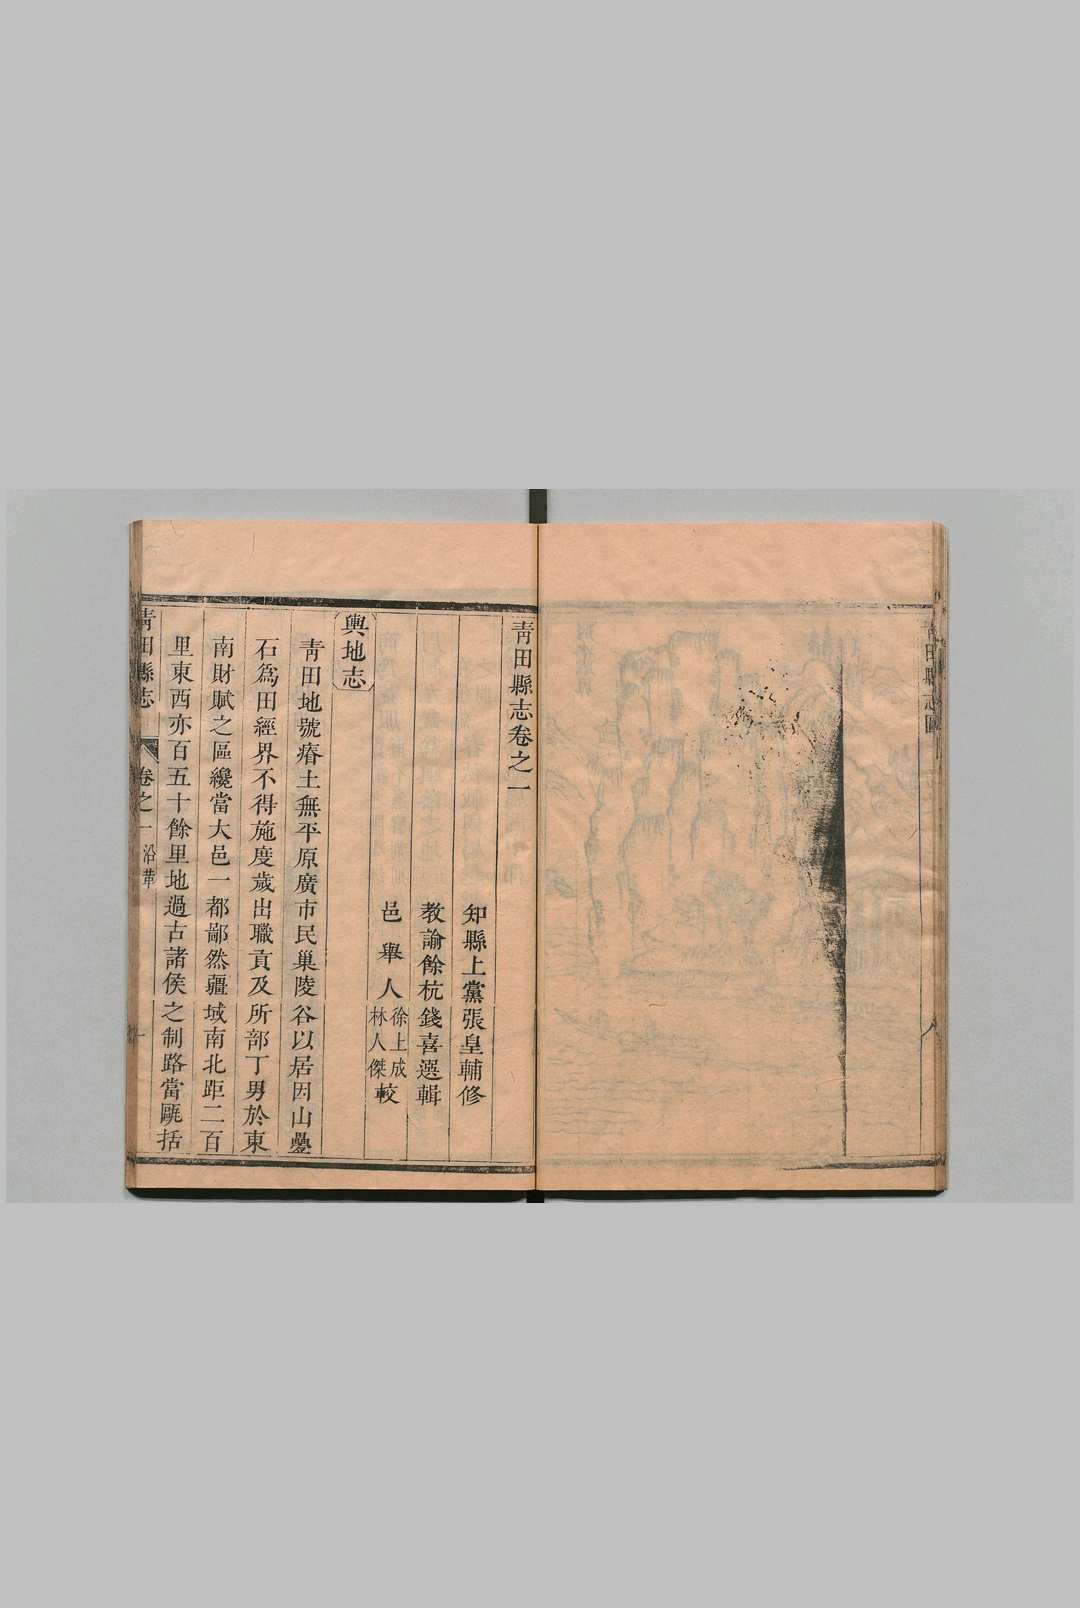 青田縣志圖
青田縣志卷之一
知縣上黨張皇輔修
教諭餘杭錢喜選輯
邑舉人徐上成
林人傑較
輿地志
青田地號瘠土無平原廣市民巢陵谷以居因山疊
石爲田經界不得施度歲出職貢及所部丁男於東
南財賦之區纔當大邑一都鄙然疆域南北距二百
里東西亦百五十餘里地過古諸侯之制路當甌括
青田縣志
卷之一
沿革
一